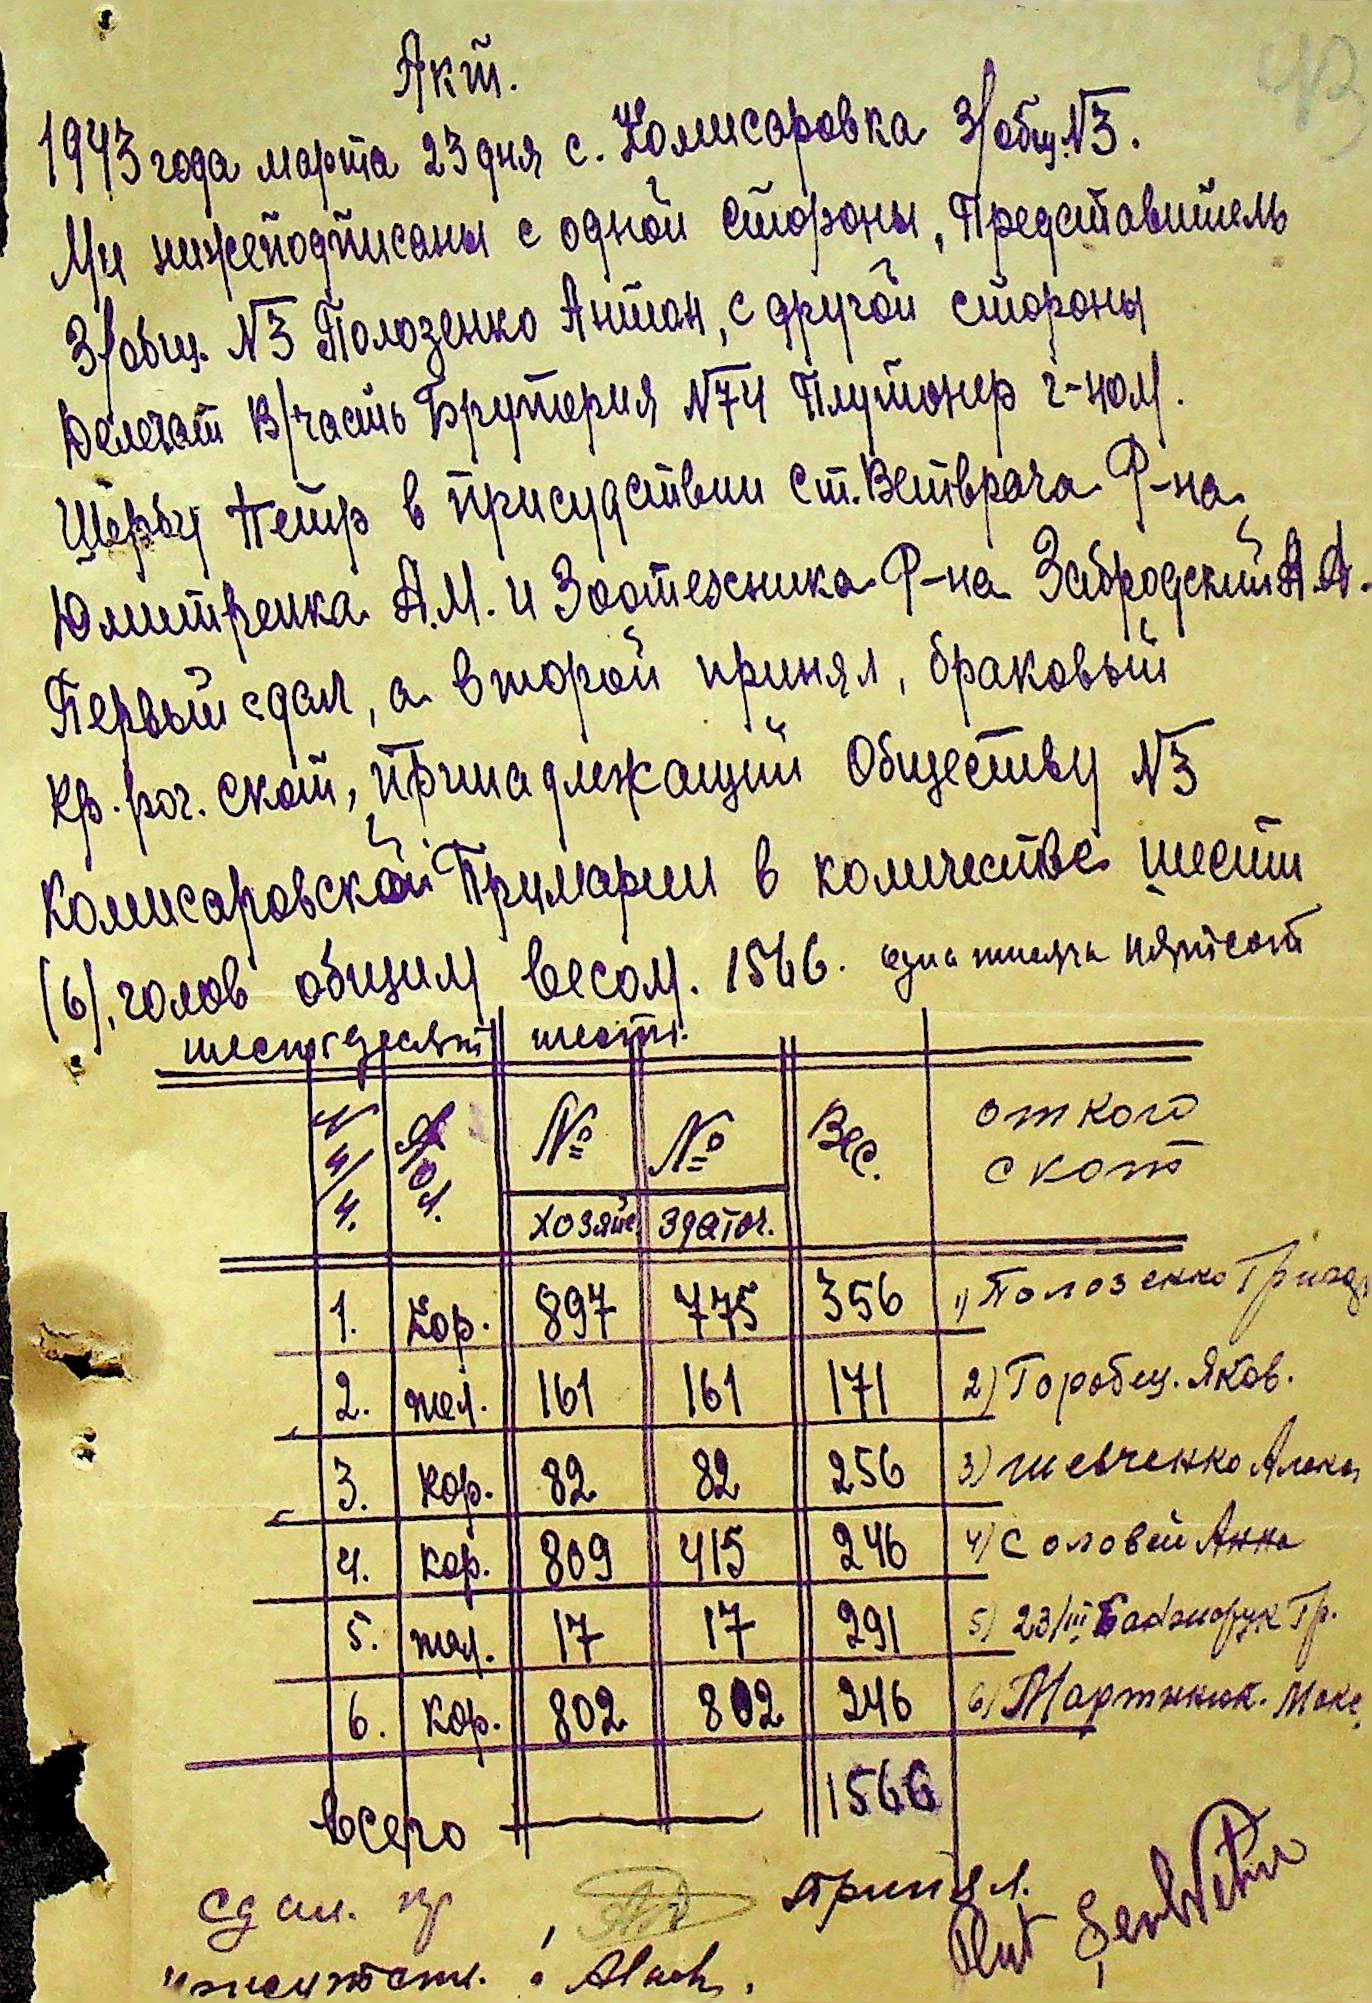 43
Акт.
1943 года марта 23 дня с. Комисаровка З/общ. №3.
Ми нижеподписаны с одной стороны, Представитель
З/общ. №3 Полозенко Антон, с другой стороны
Делегат В/часть Брутерия №74 Плутонер г-ном.
Шербу Петр в присудствии ст. Ветврача Р-на
Юмитренка А.М. и Зоотехника Р-на Забродский А.А.
Первый сдал, а второй принял, браковый
кр. рог. скот, принадлежащий Обществу №3
Комисаровской Примарии в количестве шест
(6), голов общим весом. 1566. одна тисяча пятсот
шестдесят шесть.
№ п/п. № № Вес. от кого
скот
хозяйс здаточ.
1. Кор. 897 775 356 1) Полозенко Григор
2. тел. 161 161 171 2) Горобец. Яков.
3. Кор. 82 82 256 3) Шевченко Алекс
4. кор. 809 415 246 4) Соловей Анна
5. тел. 17 17 291 5) 23/III Гр.
6. Кор. 802 802 246 6) Мартинюк. Макс
всего 1566
Сдал. Принял.
Plut Șerb Petru